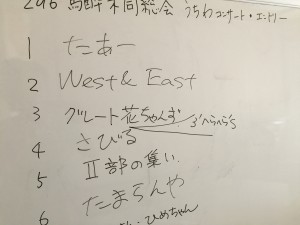 296 馬酔木同総会 うちわコンサート・エントリー
1 たあー
2 West & East
3 グレート花ちゃんず
4 さびる
5 Ⅱ部の集い
たまらんや
6 ひめちゃん